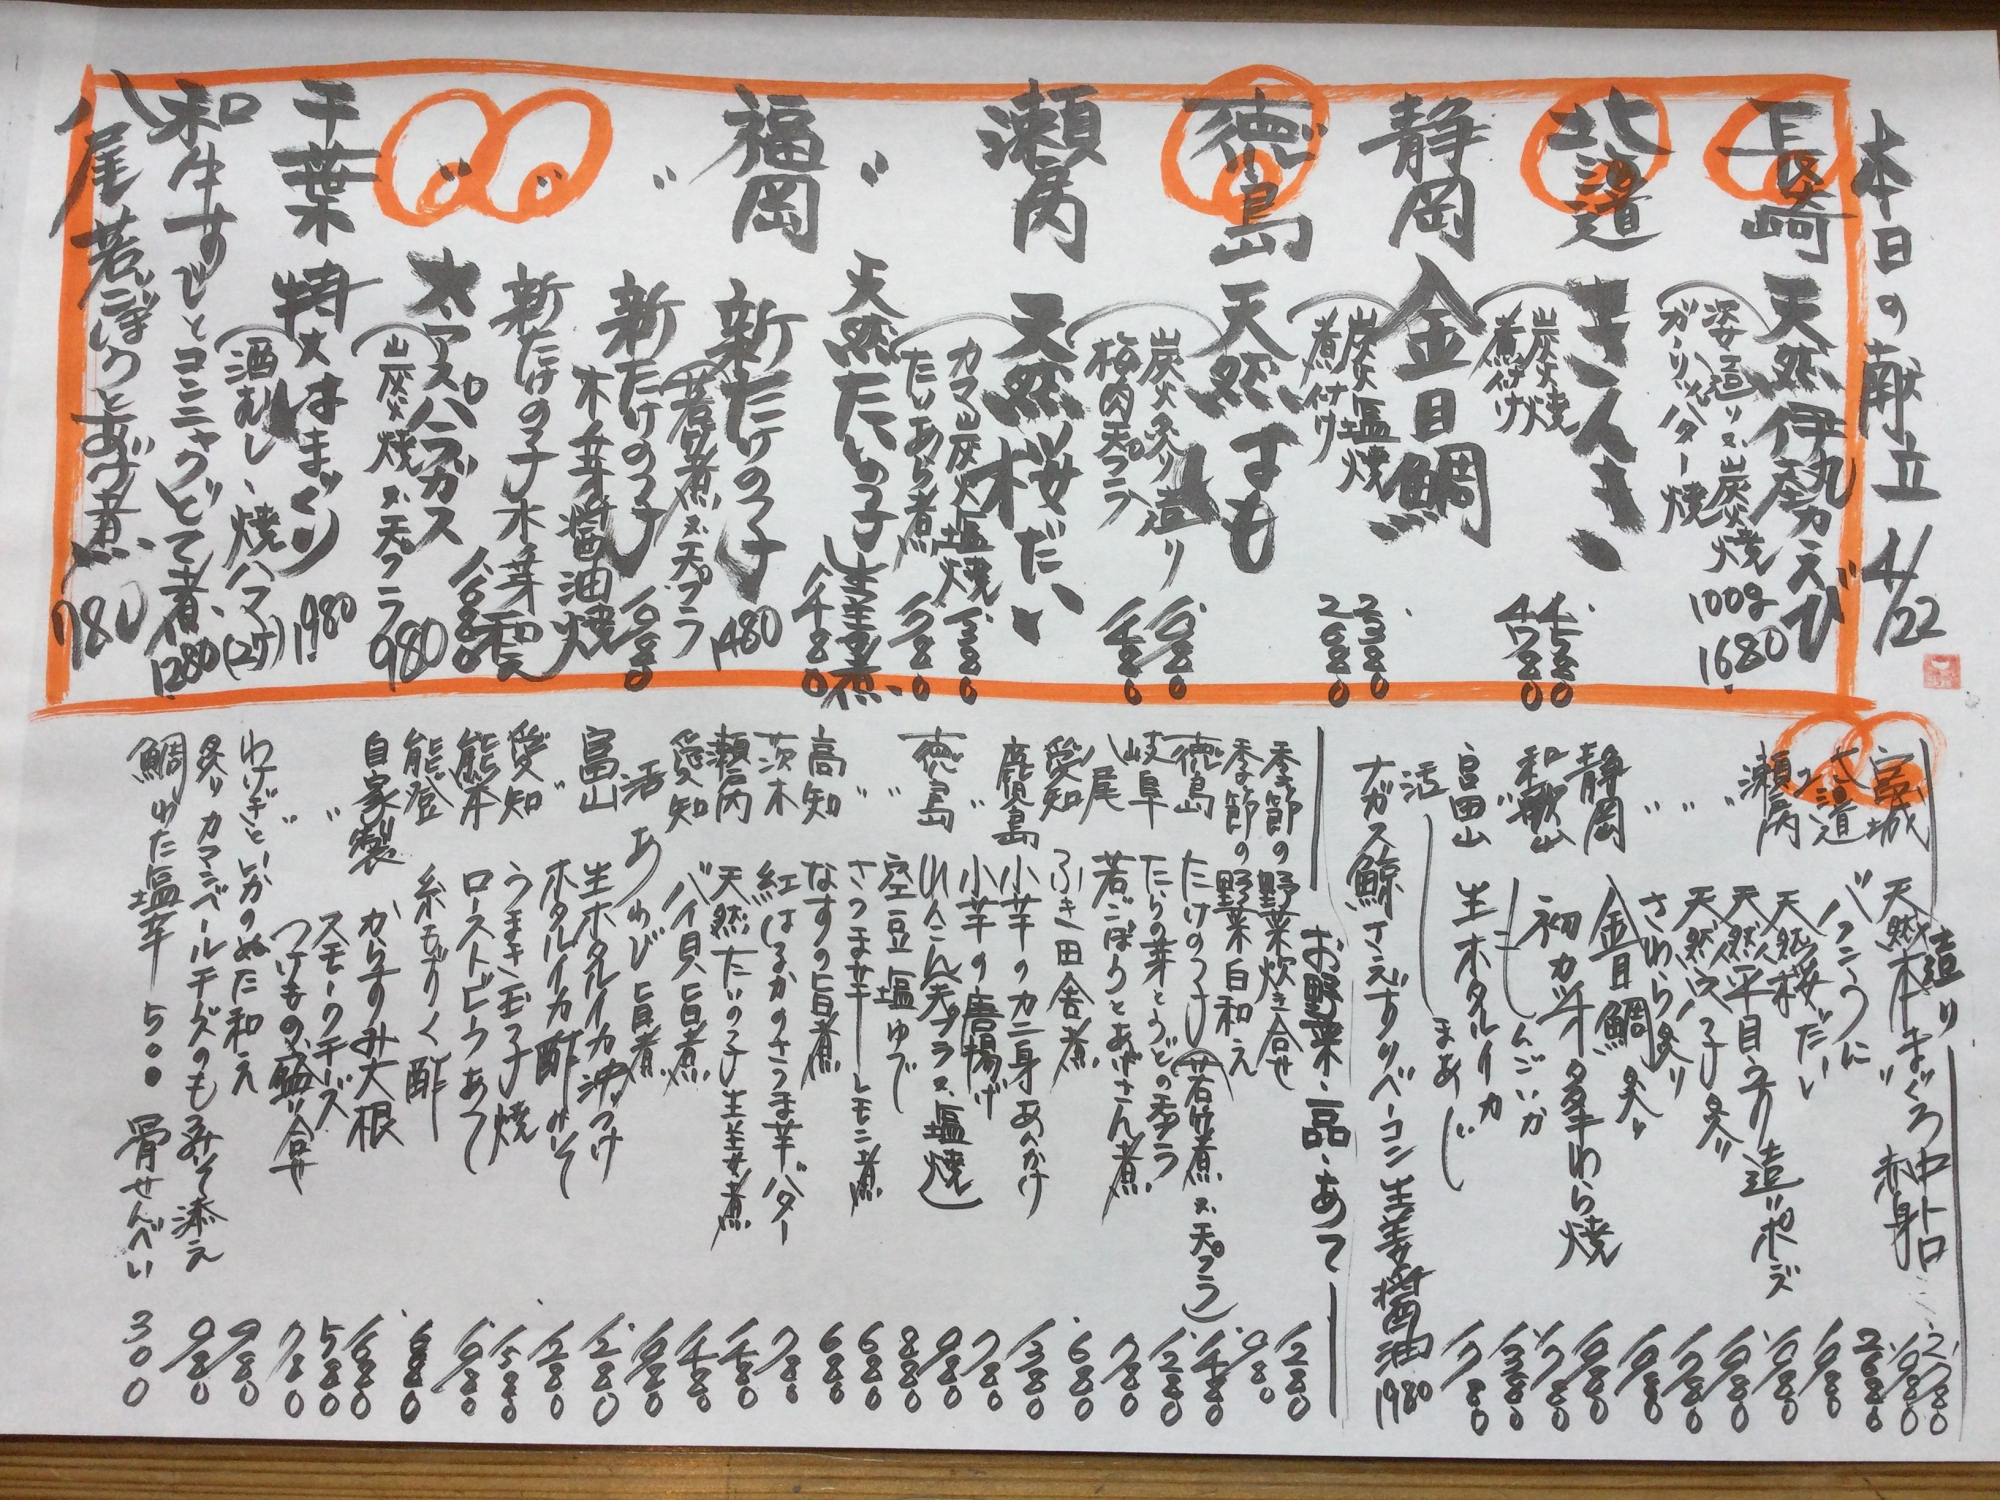 本日の献立 4/22
長崎 天然伊勢えび
姿造り又ハ炭火焼
ガーリックバター焼 100g 1680
北海道 きんき
炭火焼
煮付け 4780
静岡 金目鯛
炭火塩焼 2380
煮付け 2680
徳島 天然はも
炭火炙り造り
梅肉天プラ 1480
瀬戸内 天然桜だい
カマ炭火塩焼 1380
たいあら煮
〃 天然たいの子生姜煮 1480
福岡 新たけの子 1480
若竹煮又ハ天プラ
〃 新たけの子
木ノ芽醤油焼
〃 新たけの子木ノ芽和え
〃 大アスパラガス 980
炭火焼又ハ天プラ
千葉 特大はまぐり 1980
酒むし、焼ハマ(2ケ)
和牛すじとコンニャクどて煮 1280
八尾若ごぼうとあげ煮 780
造り
宮城 天然本まぐろ 中トロ
赤身 1980
北海道 バフンうに 2680
瀬戸内 天然桜だい
〃 天然平目うす造りポン酢
〃 天然たい子炙り
〃 さわら炙り
静岡 金目鯛炙り
和歌山 初カツオ藁わら焼
富山 生ホタルイカ
活 まあじ
ナガス鯨さえずりベーコン生姜醤油 1980
お野菜・一品・あて
季節の野菜炊き合せ 1280
季節の野菜白和え 980
徳島 たけのこ(若竹煮又ハ天プラ) 1480
岐阜 たらの芽とうどの天プラ 1280
八尾 若ごぼうとあげさん煮 780
愛知 ふき田舎煮 680
鹿児島 小芋のカニ身あんかけ 1380
〃 小芋の唐揚げ 780
徳島 れんこん(天プラ又ハ塩焼) 980
〃 空豆塩ゆで 880
〃 さつま芋レモン煮 680
高知 なすの旨煮 680
茨木 紅はるかのさつま芋バター 780
瀬戸内 天然たいの子生姜煮 1480
愛知 バイ貝旨煮 1480
活 あわび旨煮
富山 生ホタルイカ沖づけ 1280
〃 ホタルイカ酢みそ 1280
愛知 うまき玉子焼 1580
熊本 ローストビーフあて
能登 糸もずく酢 680
自家製 からすみ大根
〃 スモークチーズ 580
〃 つけもの盛り合せ 780
わけぎといかのぬた和え 980
炙りカマンベールチーズのもろみそ添え 980
鯛わた塩辛 500 骨せんべい 300